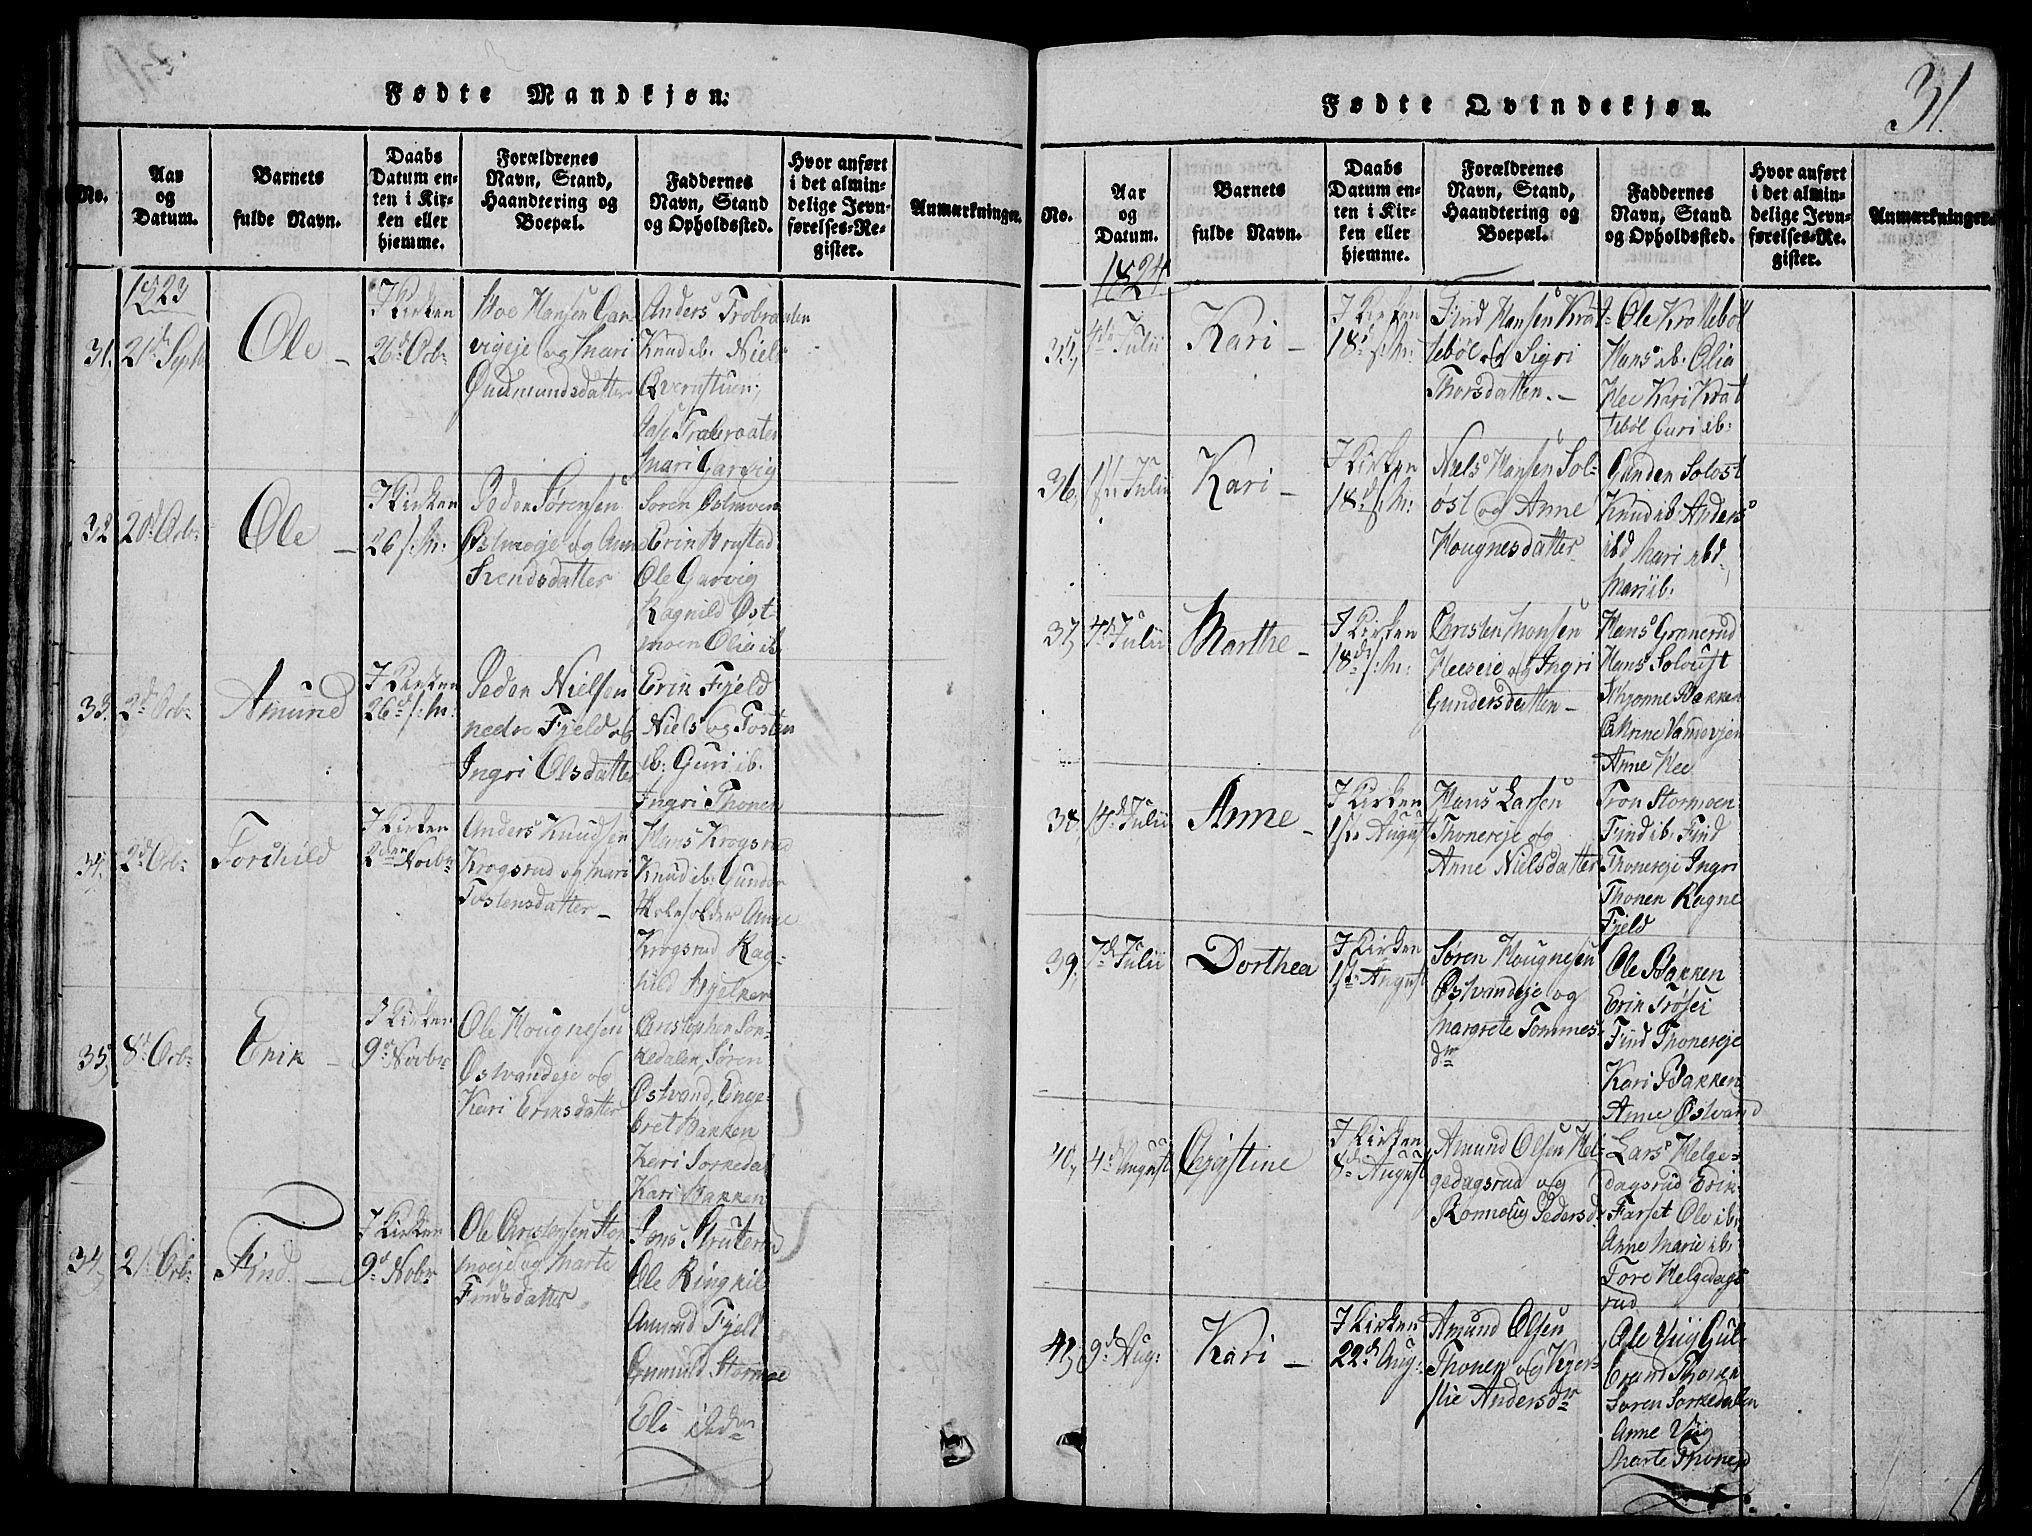 Fødte Mandkjøn:
No.
Aar og Datum.
Barnets fulde Navn.
Daabs Datum enten i Kirken eller hjemme.
Forældrenes Navn, Stand, Haandtering og Boepæl.
Faddernes Navn, Stand og Opholdssted.
Hvor anført i det almindelige Jevnførelses-Register.
Anmærkninger.
1823
31.
21d Sptb
Ole –
I Kirken
26d Octbr
Hansen Gar
vigeje og Mari
Gudmundsdatter
Anders Frobraaten
Knud ib. Niels
Qvernstuen,
Mari Garvig
32
20d Octbr
Ole –
I Kirken
26 s: M:
Peder Sörensen
Østmoeje og Anne
Svendsdatter
Soren Østmoen
Erik Brustad
Ole Garvig
Ragnild Øst
moen Olia ib
33.
2d Octbr
Amund
I Kirken
26d s: M:
Peder Nielsen
nedre Fjeld og
Ingri Olsdatter
Erik Fjeld
Niels og Tosten
ib: Guri ib.
Ingri Thonen
34.
2d Octbr
Torchild
I Kirken
2den Novbr
Anders Knudsen
Krogsrud og Mari
Tostensdatter –
Hans Krogsrud
Knud ib. Gunder
Anne
Krogsrud Rag-
hild
35,
8d Octbr
Erik –
I Kirken
9d Novbr
Ole Hougnesen
Østvandeje og
Kari Eriksdatter
Christopher Sør-
kedalen, Sören
Østvand, Enge-
bret Bakken
Kari Sorkedal
Kari Bakken
34,
21d Octbr
Find. –
I Kirken
9d Nobr
Ole Christensen Stor
moeje og Marte
Findsdatter
Jens Struterud
Ole Ringkil
Amund Fjeld
Gunmund Stormoe
Eli ibden
Fødte Qvindekjøn.
31.
No.
Aar og Datum.
Barnets fulde Navn.
Daabs Datum enten i Kirken eller hjemme.
Forældrenes Navn, Stand, Haandtering og Boepæl.
Faddernes Navn, Stand og Opholdssted.
Hvor anført i det almindelige Jevnførelses-Re.gister.
Anmærkninger.
1824
35,
4de Julii
Kari –
I Kirken
18d s: M:
Find Hansen Krat-
tebøl og Sigri
Thorsdatter. –
Ole Krattebøl
Hans ib. Olia
Hee Kari Krat
tebøl Guri ib:
36,
1st Julii
Kari –
I Kirken
18d s: M:
Niels Hansen Sol-
öst og Anne
Hougnesdatter
Gunder Soløst
Knud ib. Anders
ibd Mari ibd
Mari ib.
37,
4d Julii
Marthe –
I Kirken
18d s: M:
Christen Hansen
Heeseie og Ingri
Gundersdatter –
Hans Grønerud
Hans Soløst
Bakken
Anne Hee
38,
4d Julii
Anne –
I Kirken
1ste August
Hans Larsen
Thonereje og
Anne Nielsdatter
Tron Stormoen
Find ib: Find
Thonereje Ingri
Thonen Ragne
Fjeld
39,
7d Julii
Dorthea
I Kirken
1ste August
Søren Hougnesen
Østvandeje og
Margrete Tommes-
dtr
Ole Bakken
Erik Frøsei
Find Thonereje
Kari Bakken
Anne Østvand
40,
4d August
Christine
I Kirken
8d August
Amund Olsen Hel-
gedagsrud og
Ronnoug Pedersd.
Lars Helge-
dagsrud Erik
Farset Ole ib:
Anne Marie ib:
Tore Helgedags
rud
41,
9d Aug:
Kari –
I Kirken
22d Aug:
Amund Olsen
Thonen og Kjer-
stie Andersdtr
Ole Viig Gul-
brand Thonen
Soren Sorkedalen
Anne Viig
Marte Thonen